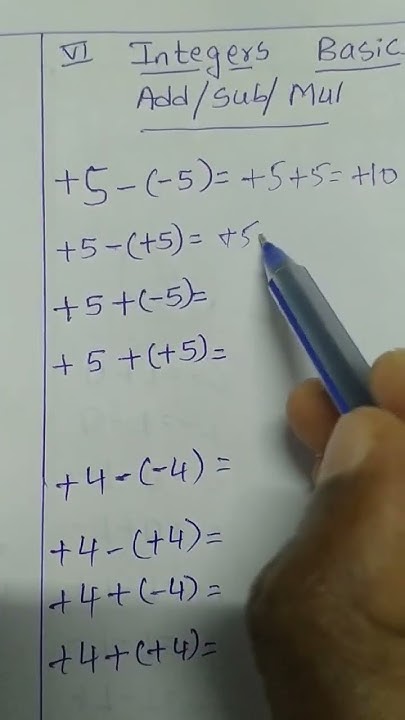 VI Integers Basic
Add/Sub/Mul
+5-(-5)= +5+5= +10
+5-(+5)= +5
+5+(-5)=
+5+(+5)=
+4-(-4)=
+4-(+4)=
+4+(-4)=
+4+(+4)=